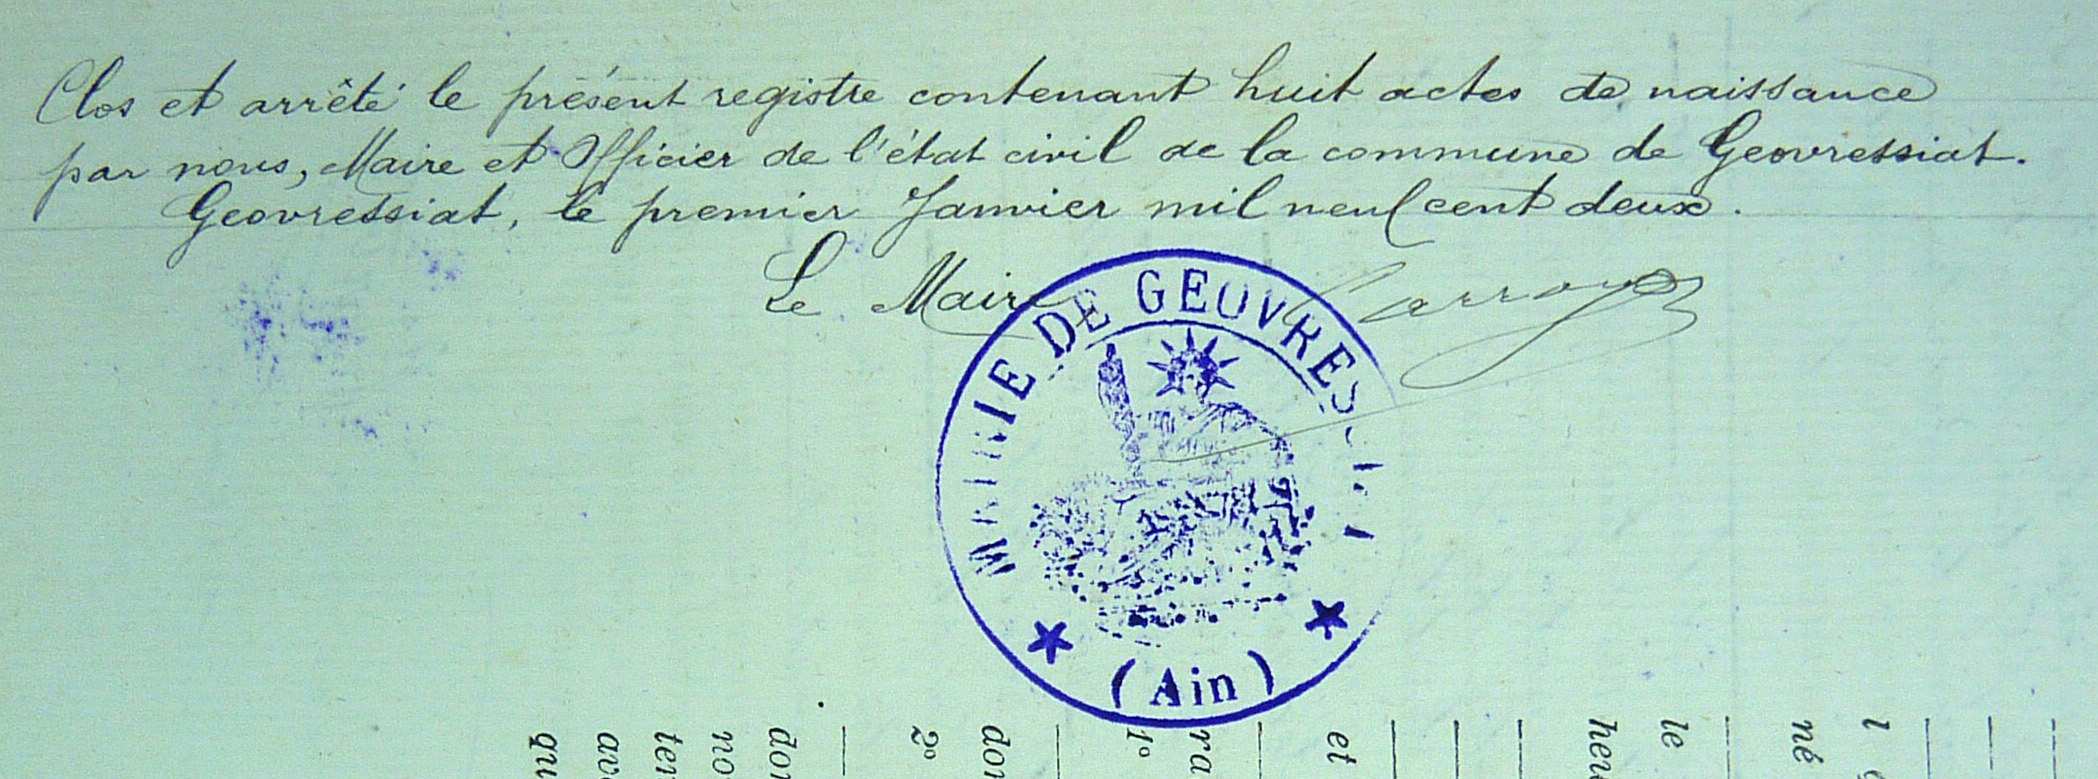 Clos et arrêté le présent registre contenant huit actes de naissance
par nous, Maire et Officier de l'état civil de la commune de Geovressiat.
Geovressiat, le premier Janvier mil neuf cent deux.
Le Maire
MAIRIE DE GEOVRES
(Ain)
l
né
le
heu
et
ra
1º
don
2º
don
no
ter
ave
qu